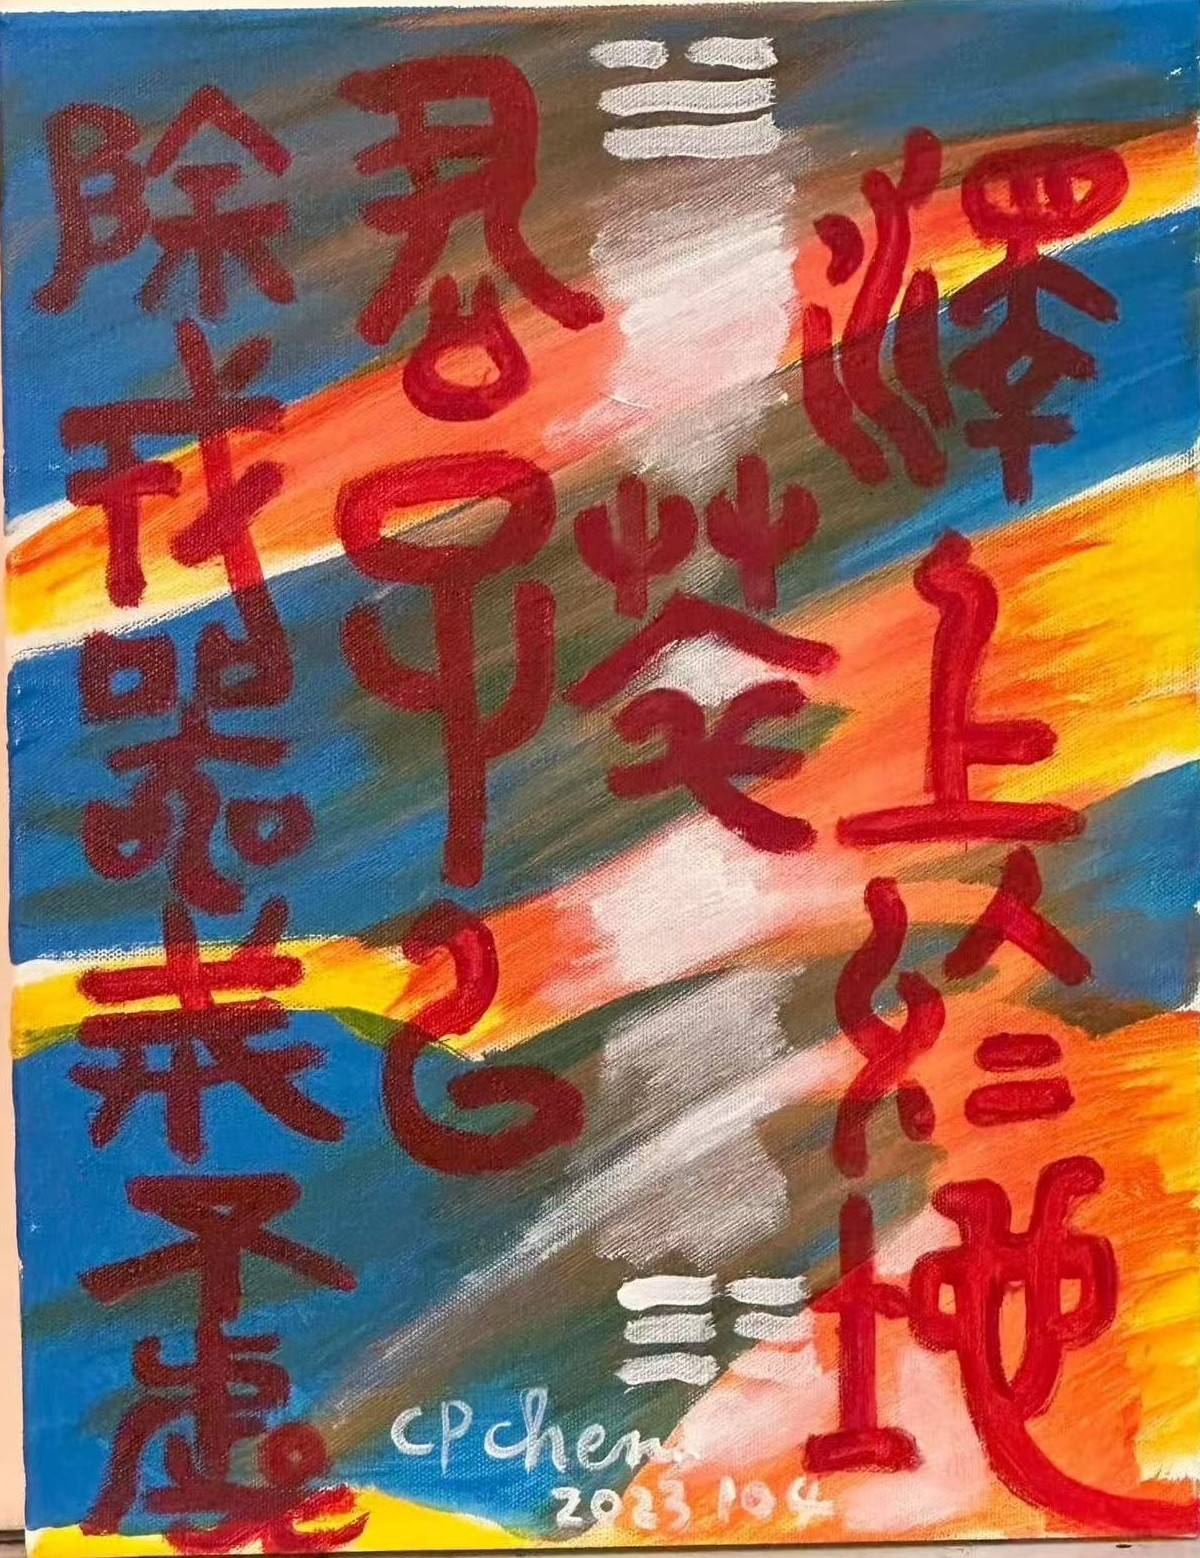 澤上於地
萃
君子以
除戎器戒不虞
CP chen
2023.104